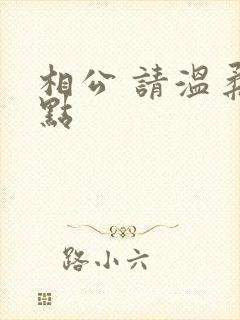 相公 請溫柔
點
路小六